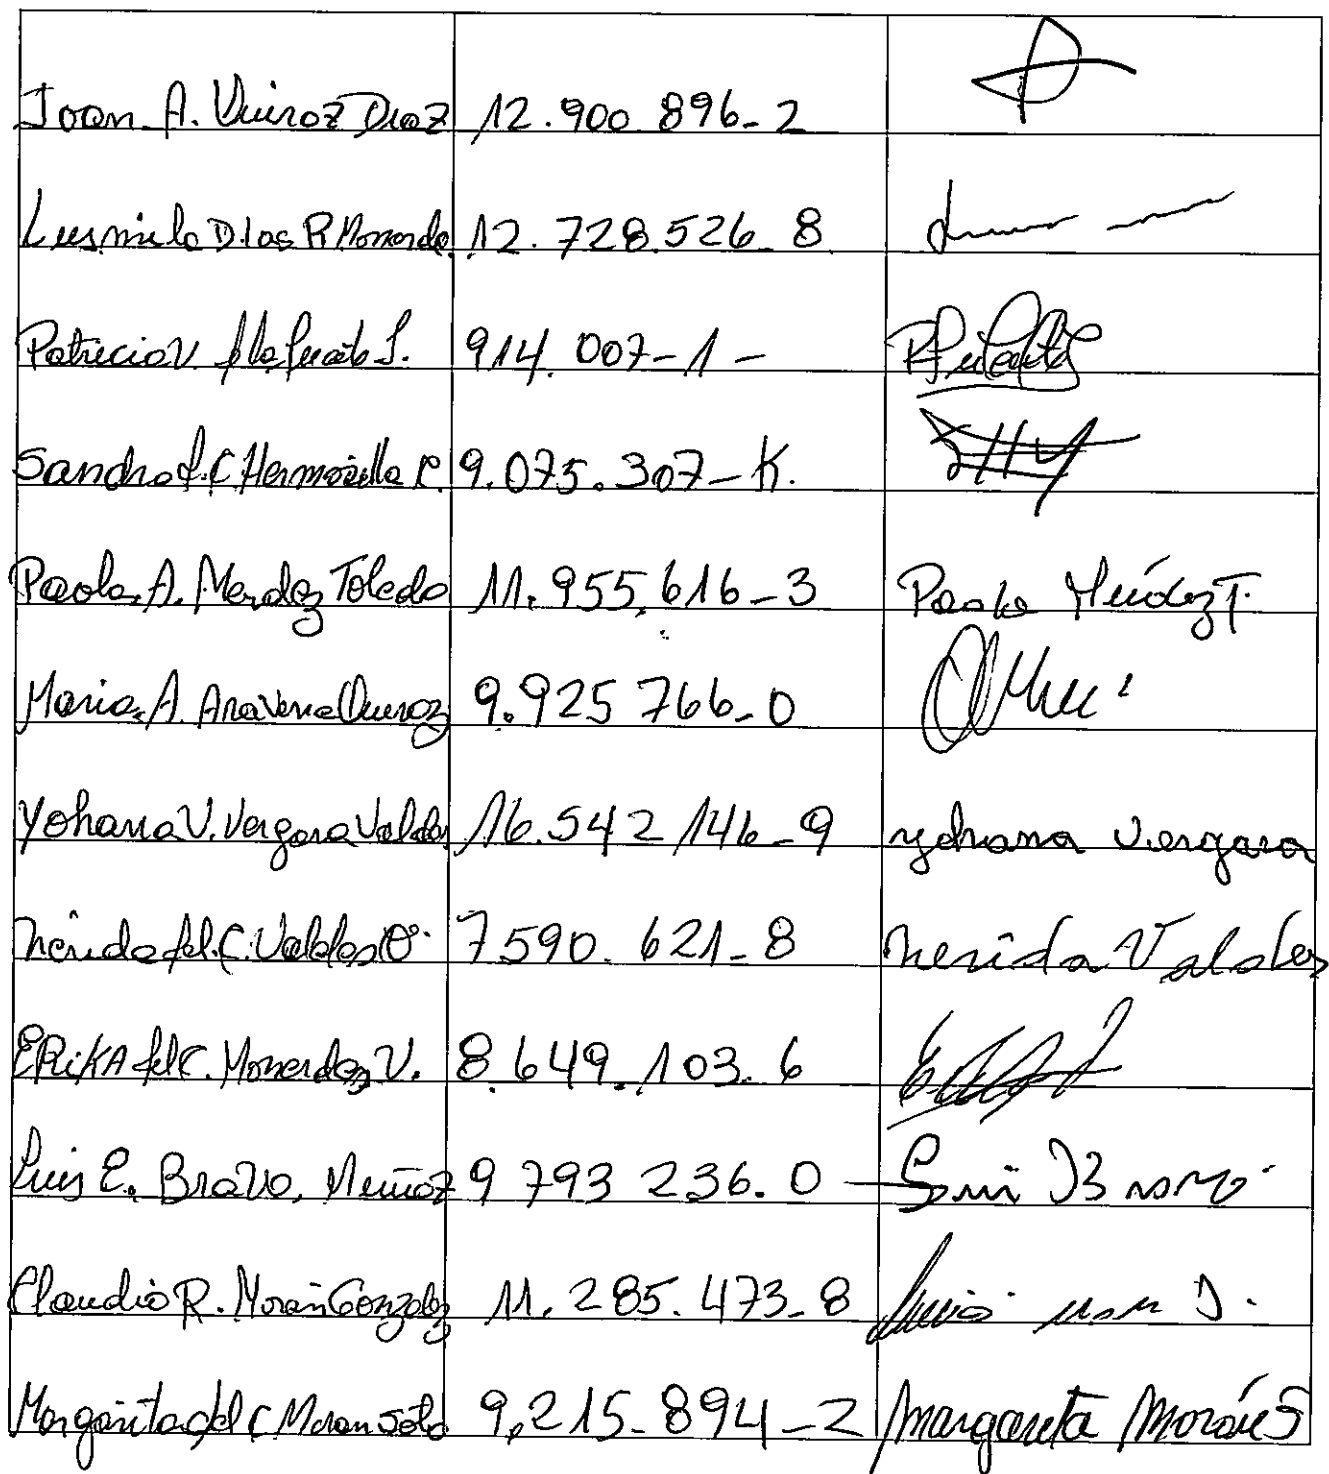 Joan A. Quiroz Diaz 12.900 896-2
Lusmila D. las R Monarde 12.728.526-8
Patricia V. 914.007-1-
Sandra d.C Hermosilla P. 9.075.307-K.
Paola A. Mendez Toledo 11.955.616-3 Paola Méndez T.
Maria A. Aravena Quiroz 9.925 766-0
Yohana V. Vergara Valdes 16.542 146-9 yohana Vergara
Nerida del C. Valdes O. 7590.621-8 nerida Valdes
ERiKA del C. V. 8.649.103.6
Luis E. Bravo, Muñoz 9 793 236.0 Luis Bravo
Claudio R. Morán Gonzalez 11.285.473-8
Margarita del C Moran Soto 9,215-894-2 Margarita Morán S